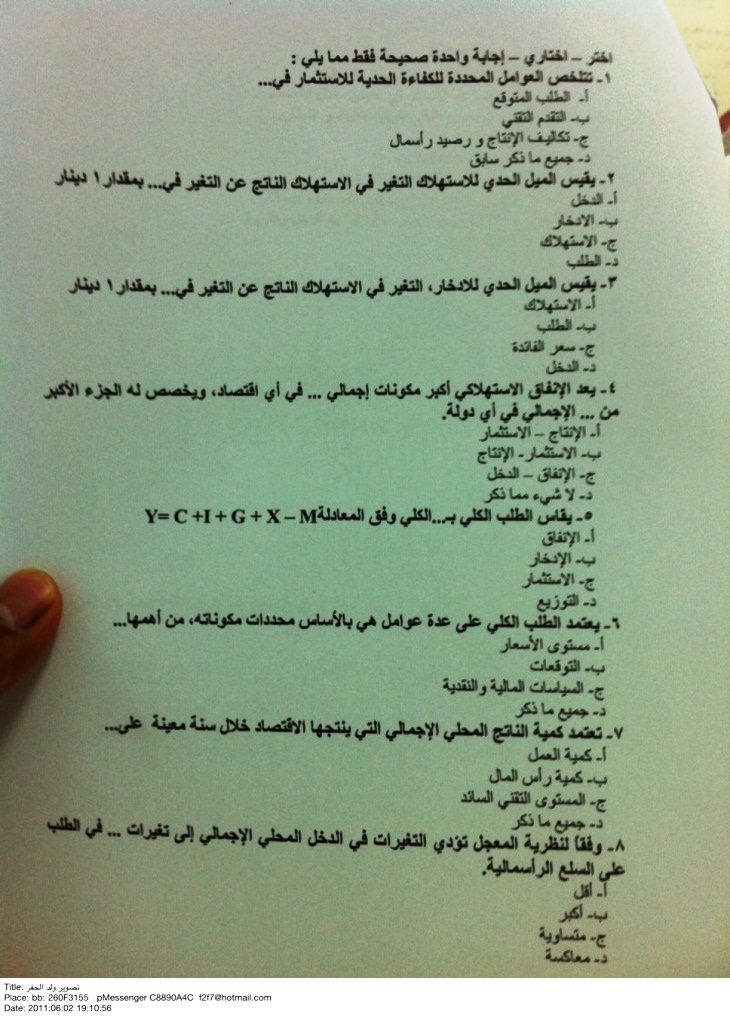 اختر – اختاري – إجابة واحدة صحيحة فقط مما يلي :
١- تتلخص العوامل المحددة للكفاءة الحدية للاستثمار في...
أ- الطلب المتوقع
ب- التقدم التقني
ج- تكاليف الإنتاج و رصيد رأسمال
د- جميع ما ذكر سابق
٢- يقيس الميل الحدي للاستهلاك التغير في الاستهلاك الناتج عن التغير في... بمقدار ١ دينار
أ- الدخل
ب- الادخار
ج- الاستهلاك
د- الطلب
٣- يقيس الميل الحدي للادخار، التغير في الاستهلاك الناتج عن التغير في... بمقدار ١ دينار
أ- الاستهلاك
ب- الطلب
ج- سعر الفائدة
د- الدخل
٤- يعد الإنفاق الاستهلاكي أكبر مكونات إجمالي ... في أي اقتصاد، ويخصص له الجزء الأكبر
من ... الإجمالي في أي دولة.
أ- الإنتاج – الاستثمار
ب- الاستثمار - الإنتاج
ج- الإنفاق – الدخل
د- لا شيء مما ذكر
٥- يقاس الطلب الكلي بـ...الكلي وفق المعادلة Y= C +I + G + X – M
أ- الإنفاق
ب- الإدخار
ج- الاستثمار
د- التوزيع
٦- يعتمد الطلب الكلي على عدة عوامل هي بالأساس محددات مكوناته، من أهمها...
أ- مستوى الأسعار
ب- التوقعات
ج- السياسات المالية والنقدية
د- جميع ما ذكر
٧- تعتمد كمية الناتج المحلي الإجمالي التي ينتجها الاقتصاد خلال سنة معينة على...
أ- كمية العمل
ب- كمية رأس المال
ج- المستوى التقني السائد
د- جميع ما ذكر
٨- وفقاً لنظرية المعجل تؤدي التغيرات في الدخل المحلي الإجمالي إلى تغيرات ... في الطلب
على السلع الرأسمالية.
أ- أقل
ب- أكبر
ج- متساوية
د- معاكسة
Title: تصوير ولد الحفر
Place: bb: 260F3155 pMessenger C8890A4C f2f7@hotmail.com
Date: 2011:06:02 19:10:56